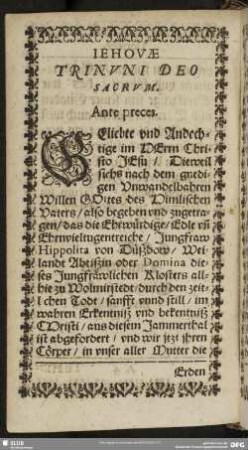 IEHOVÆ
TRINVNI DEO
SACRVM.
Ante preces.
GEliebte vnd Andech-
tige im HErrn Chri-
sto JEsu / Dieweil
sichs nach dem gnedi-
gen Vnwandelbahren
Willen GOttes des Himlischen
Vaters / also begeben vnd zugetra-
gen / das die Ehrwürdige / Edle vñ
Ehrnvieltugentreiche / Jungfraw
Hippolita von Düßbow / Wei-
lande Abtißin oder Domina die-
ses Jungfräwlichen Klosters all-
hie zu Wolmirstedt / durch den zeit-
lichen Todt / sanfft vnnd still / im
wahren Erkentniß vnd bekentniß
CHristi / aus diesem Jammerthal
ist abgefordert / vnd wir jtzt jhren
Cörper / in vnser aller Mutter die
Erden